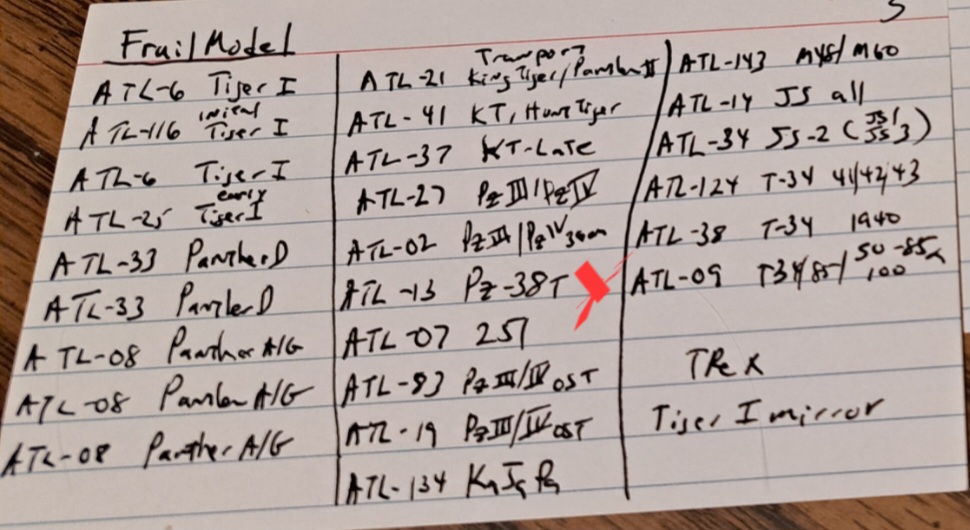 5
Fruil Model
ATL-6 Tiger I
ATL-116 inital Tiger I
ATL-6 Tiger I
ATL-25 early Tiger I
ATL-33 Panther D
ATL-33 Panter D
ATL-08 Panther A/G
ATL-08 Panter A/G
ATL-08 Panther A/G
Transport
ATL-21 King Tiger/Panther II
ATL-41 KT, Hunt Tiger
ATL-37 KT-Late
ATL-27 Pz III/Pz IV
ATL-02 Pz III/Pz IV 36cm
ATL-13 Pz-38T
ATL-07 251
ATL-83 Pz III/IV OST
ATL-19 Pz III/IV OST
ATL-134 Kg Jg Pz
ATL-143 M48/M60
ATL-14 JS all
ATL-34 JS-2 (JS1/JS3)
ATL-124 T-34 41/42/43
ATL-38 T-34 1940
ATL-09 T34/85/ 50-85
100
TRex
Tiger I mirror